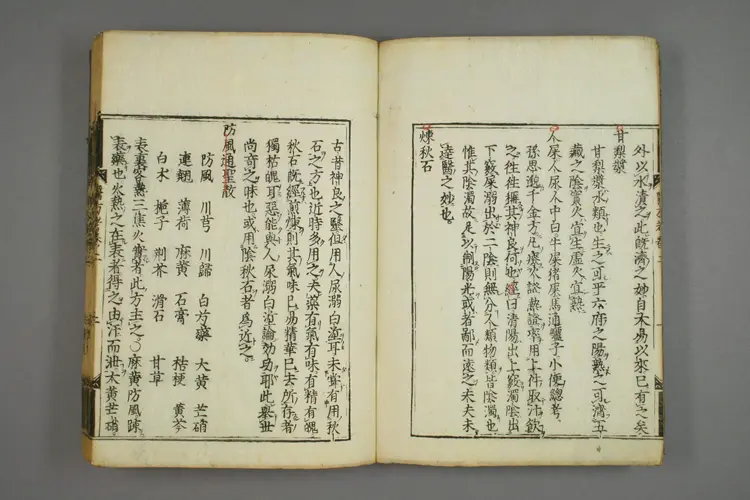 外以水漬之此既濟之妙自木易以來已有之矣
甘梨漿
甘梨漿水類也生之可平六府之陽熟之可濟五
藏之陰實火宜生虛火宜熟
人尿人尿人中白牛尿猪尿馬通驢子小便總考
孫思邈千金方凡療火證熱證率用上件取沛飲
之往往獲其神良何也經曰清陽出上竅濁陰出
下竅尿溺出於二陰則經分人類物類皆陰濁也
惟其陰濁故足以制陽光或者鄙而遠之夫夫未
達醫之妙也
煉秋石
古昔神良之醫但用人尿溺白垽耳未嘗有用秋
石之方也近時多用之夫藥有氣有味有精有魄
秋石既經煎煉則其氣味已易精華已去所存者
獨枯魄耳惡能與人尿溺白垽論功効耶此舉世
尚奇之昧也或用陰秋石者爲近之
防風通聖散
防風 川芎 川歸 白芍藥 大黃 芒硝
連翹 薄荷 麻黃 石膏 桔梗 黃芩
白朮 梔子 荊芥 滑石 甘草
表裏客熱三焦火實者此方主之○麻黃防風疎
表藥也火熱之在表者得之由汗而泄大黃芒硝